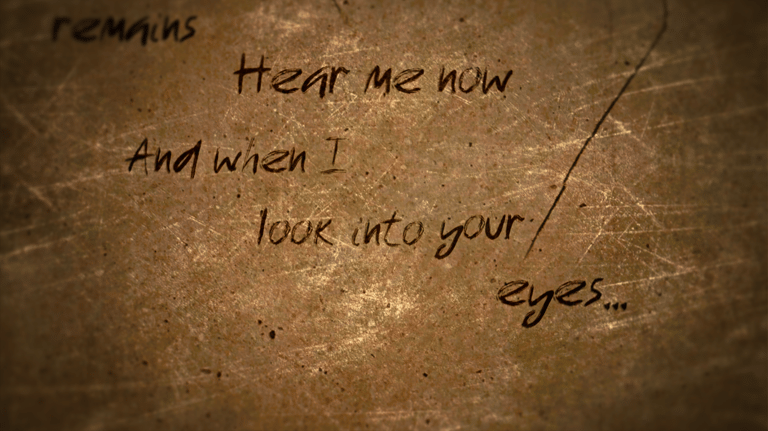 remains
Hear me now
And when I
look into your
eyes...